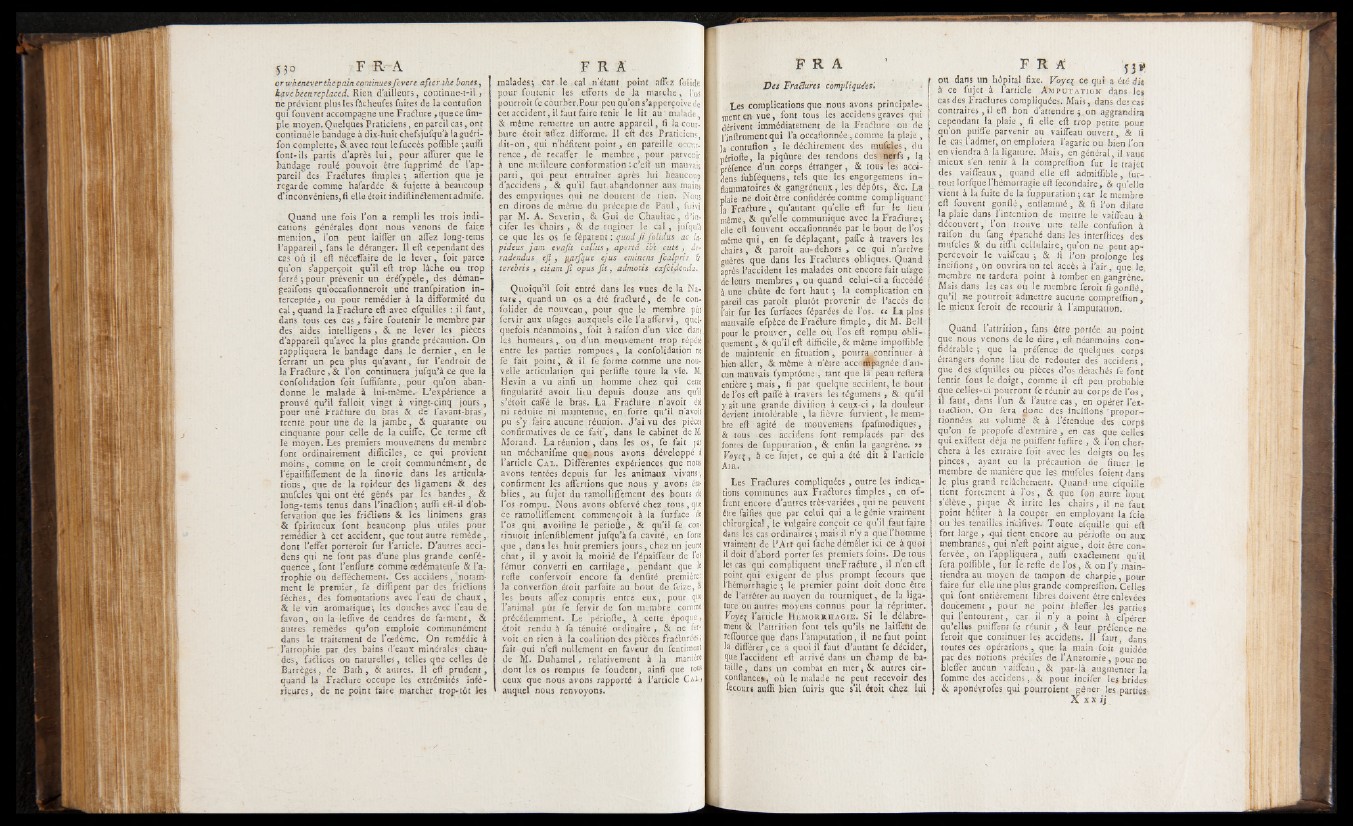 530 FRA
or whenever the pain continues severe after the bones,
have been replaced. Rien d'ailleurs, continue-t-il,
ne prévient plus les fâcheuses suites de la contusion
qui souvent accompagne une Fracture, que ce sim-
ple moyen. Quelques Praticiens, en pareil cas, ont
continué le bandage à dix-huit chefs jusqu'à la guéri-
son complette, & avec tout le succès possible; aussi
sont-ils partis d'après lui, pour assurer que le
bandage roulé pouvoit être supprimé de l'ap-
pareil des Fractures simples; assertion que je
regarde comme hasardée & sujette à beaucoup
d'inconvéniens, si elle étoit indistinctement admise.
Quand une fois l'on a rempli les trois indi-
cations générales dont nous venons de faire
mention, l'on peut laisser un assez long-tems
l'appareil, sans le déranger. Il est cependant des
cas où il est nécessaire de le lever, soit parce
qu'on s'apperçoit qu'il est trop lâche ou trop
serré; pour prévenir un érésypèle, des déman-
geaisons qu'occasionneroit une transpiration in-
terceptée, ou pour remédier à la difformité du
cal, quand la Fracture est avec esquilles: il faut,
dans tous ces cas, faire soutenir le membre par
des aides intelligens, & ne lever les pièces
d'appareil qu'avec la plus grande précaution. On
rappliquera le bandage dans le dernier, en le
serrant un peu plus qu'avant, sur l'endroit de
la Fracture, & l'on continuera jusqu'à ce que la
consolidation soit suffisante, pour qu'on aban-
donne le malade à lui-même. L'expérience a
prouvé qu'il falloit vingt à vingt-cinq jours,
pour une Fracture du bras & de l'avant-bras,
trente pour une de la jambe, & quarante ou
cinquante pour celle de la cuisse. Ce terme est
le moyen. Les premiers mouvemens du membre
sont ordinairement difficiles, ce qui provient
moins, comme on le croit communément, de
l'épaississement de la sinovie dans les articula-
tions, que de la roideur des ligamens & des
muscles qui ont été gênés par les bandes, &
long-tems tenus dans l'inaction; aussi est-il d'ob-
servation que les frictions & les linimens gras
& spiritueux sont beaucoup plus utiles pour
remédier à cet accident, que tout autre remède,
dont l'effet porteroit sur l'article. D'autres acci-
dens qui ne sont pas d'une plus grande consé-
quence, sont l'enflure comme œdémateuse & l'a-
trophie ou dessèchement. Ces accidens, notam-
ment le premier, se dissipent par des frictions
sèches, des fomentations avec l'eau de chaux,
& le vin aromatique; les douches avec l'eau de
savon, ou la lessive de cendres de sarment, &
autres remèdes qu'on emploie communément
dans le traitement de l'œdème. On remédie à
l'atrophie par des bains d'eaux minérales chau-
des, factices ou naturelles, telles que celles de
Barrèges, de Bath, & autres. Il est prudent,
quand la Fracture occupe les extrémités infé-
rieures, de ne point faire marcher trop-tôt les
FRA
malades; car le cal n'étant point assez solide
pour soutenir les efforts de la marche, l'os
pourroit se courber. Pour peu qu'on s'apperçoive de
cet accident, il faut faire tenir le lit au malade,
& même remettre un autre appareil, si la cour-
bure étoit assez difforme. Il est des Praticiens,
dit-on, qui n'hésitent point, en pareille occur-
rence, de recasser le membre, pour parvenir
à une meilleure conformation: c'est un mauvais
parti, qui peut entraîner après lui beaucoup
d'accidens, & qu'il faut abandonner aux mains
des empyriques qui ne doutent de rien. Nous
en dirons de même du précepte de Paul, suivi
par M. A. Severin, & Gui de Chauliac, d'in-
ciser les chairs, & de ruginer le cal, jusqu'à
ce que les os se séparent: quod si solidus ac la-
pideus jam evasit callus, apertâ ibi cute, de-
radendus est, parsque ejus eminens scalpris &
terebris, etiam si opus sit, admotis excidenda.
Quoiqu'il soit entré dans les vues de la Na-
ture, quand un os a été fracturé, de le con-
solider de nouveau, pour que le membre pût
servir aux usages auxquels elle l'a asservi, quel-
quefois néanmoins, soit à raison d'un vice dans
les humeurs, ou d'un mouvement trop répété
entre les parties rompues, la consolidation ne
se fait point, & il se forme comme une nou-
velle articulation qui persiste toute la vie. M.
Hevin a vu ainsi un homme chez qui cette
singularité avoit lieu depuis douze ans qu'il
s'étoit cassé le bras. La Fracture n'avoit été
ni réduite ni maintenue, en sorte qu'il n'avoit
pu s'y faire aucune réunion. J'ai vu des pièces
confirmatives de ce fait, dans le cabinet de M.
Morand. La réunion, dans les os, se fait par
un méchanisme que nous avons développé à
l'article Cal. Différentes expériences que nous
avons tentées depuis sur les animaux vivans,
confirment les assertions que nous y avons éta-
blies, au sujet du ramollissement des bouts de
l'os rompu. Nous avons observé chez tous, que
ce ramollissement commençoit à la surface de
l'os qui avoisine le périoste, & qu'il se con-
tinuoit insensiblement jusqu'à sa cavité, en sorte
que, dans les huit premiers jours, chez un jeune
chat, il y avoit la moitié de l'épaisseur de l'os
fémur converti en cartilage, pendant que le
reste conservoit encore sa densité première:
la conversion étoit parfaite au bout de seize, &
les bouts assez compris entre eux, pour que
l'animal pût se servir de son membre comme
précédemment. Le périoste, à cette époque,
étoit rendu à sa ténuité ordinaire, & ne ser-
voit en rien à la coalition des pièces fracturées;
fait qui n'est nullement en faveur du sentiment
de M. Duhamel, relativement à la manière
dont les os rompus se soudent, ainsi que tous
ceux que nous avons rapporté à l'article Cal,
auquel nous renvoyons.
FRA
Des Fractures compliquées.
Les complications que nous avons principale-
ment en vue, sont tous les accidens graves qui
dérivent immédiatement de la Fracture ou de
l'instrument qui l'a occasionnée, comme la plaie,
la contusion, le déchirement des muscles, du
périoste, la piqûre des tendons des nerfs, la
présence d'un corps étranger, & tous les acci-
dens subséquens, tels que les engorgemens in-
flammatoires & gangréneux, les dépôts, &c. La
plaie ne doit être considérée comme compliquant
la Fracture, qu'autant qu'elle est sur le lieu
même, & qu'elle communique avec la Fracture;
elle est souvent occasionnée par le bout de l'os
même qui, en se déplaçant, passe à travers les
chairs, & paroît au-dehors, ce qui n'arrive
guères que dans les Fractures obliques. Quand
après l'accident les malades ont encore fait usage
de leurs membres, ou quand celui-ci a succédé
à une chûte de fort haut; la complication en
pareil cas paroît plutôt provenir de l'accès de
l'air sur les surfaces séparées de l'os. « La plus
mauvaise espèce de Fracture simple, dit M. Bell
pour le prouver, celle où l'os est rompu obli-
quement, & qu'il est difficile, & même impossible
de maintenir en situation, pourra continuer à
bien aller, & même à n'être accompagnée d'au-
cun mauvais symptôme, tant que la peau restera
entière; mais, si par quelque accident, le bout
de l'os est passé à travers les tégumens, & qu'il
y ait une grande division à ceux-ci, la douleur
devient intolérable, la fièvre survient, le mem-
bre est agité de mouvemens spasmodiques,
& tous ces accidens sont remplacés par des
fontes de suppuration, & enfin la gangrène. »
Voyez, à ce sujet, ce qui a été dit à l'article
Air.
Les Fractures compliquées, outre les indica-
tions communes aux Fractures simples, en of-
frent encore d'autres très-variées, qui ne peuvent
être saisies que par celui qui a le génie vraiment
chirurgical, le vulgaire conçoit ce qu'il faut faire
dans les cas ordinaires; mais il n'y a que l'homme
vraiment de l'Art qui sache démêler ici ce à quoi
il doit d'abord porter ses premiers soins. De tous
les cas qui compliquent une Fracture, il n'en est
point qui exigent de plus prompt secours que
l'hémorrhagie; le premier point doit donc être
de l'arrêter au moyen du tourniquet, de la liga-
ture ou autres moyens connus pour la réprimer.
Voyez l'article Hemorrhagie. Si le délabre-
ment & l'attrition sont tels qu'ils ne laissent de
ressource que dans l'amputation, il ne faut point
la différer, ce à quoi il faut d'autant se décider,
que l'accident est arrivé dans un champ de ba-
taille, dans un combat en mer, & autres cir-
constances, où le malade ne peut recevoir des
secours aussi bien suivis que s'il étoit chez lui
FRA 531
ou dans un hôpital fixe. Voyez ce qui a été dit
à ce sujet à l'article Amputation dans les
cas des Fractures compliquées. Mais, dans des cas
contraires, il est bon d'attendre; on aggrandira
cependant la plaie, si elle est trop petite pour
qu'on puisse parvenir au vaisseau ouvert, & si
le cas l'admet, on emploiera l'agaric ou bien l'on
en viendra à la ligature. Mais, en général, il vaut
mieux s'en tenir à la compression sur le trajet
des vaisseaux, quand elle est admissible, sur-
tout lorsque l'hémorragie est secondaire, & qu'elle
vient à la suite de la suppuration; car le membre
est souvent gonflé, enflammé, & si l'on dilate
la plaie dans l'intention de mettre le vaisseau à
découvert, l'on trouve une telle confusion à
raison du sang épanché dans les interstices des
muscles & du tissu cellulaire, qu'on ne peut ap-
percevoir le vaisseau; & si l'on prolonge les
incisions, on ouvrira un tel accès à l'air, que le
membre ne tardera point à tomber en gangrène.
Mais dans les cas où le membre seroit si gonflé,
qu'il ne pourroit admettre aucune compression,
le mieux seroit de recourir à l'amputation.
Quand l'attrition, sans être portée au point
que nous venons de le dire, est néanmoins con-
sidérable; que la présence de quelques corps
étrangers donne lieu de redouter des accidens,
que des esquilles ou pièces d'os détachés se font
sentir sous le doigt, comme il est peu probable
que celles-ci pourront se réunir au corps de l'os,
il faut, dans l'un & l'autre cas, en opérer l'ex-
traction. On fera donc des incisions propor-
tionnées au volume & à l'étendue des corps
qu'on se propose d'extraire, en cas que celles
qui existent déja ne puissent suffire, & l'on cher-
chera à les extraire soit avec les doigts ou les
pinces, ayant eu la précaution de situer le
membre de manière que les muscles soient dans
le plus grand relâchement. Quand une esquille
tient fortement à l'os, & que son autre bout
s'élève, pique & irrite les chairs, il ne faut
point hésiter à la couper en employant la scie
ou les tenailles incisives. Toute esquille qui est
fort large, qui tient encore au périoste ou aux
membranes, qui n'est point aigue, doit être con-
servée, on l'appliquera, aussi exactement qu'il
sera possible, sur le reste de l'os, & on l'y main-
tiendra au moyen de tampon de charpie, pour
faire sur elle une plus grande compression. Celles
qui sont entièrement libres doivent être enlevées
doucement, pour ne point blesser les parties
qui l'entourent, car il n'y a point à espérer
qu'elles puissent se réunir, & leur présence ne
feroit que continuer les accidens. Il faut, dans
toutes ces opérations, que la main soit guidée
par des notions précises de l'Anatomie, pour ne
blesser aucun vaisseau, & par-là augmenter la
somme des accidens, & pour inciser les brides
& aponévroses qui pourroient gêner les parties
X x x ij